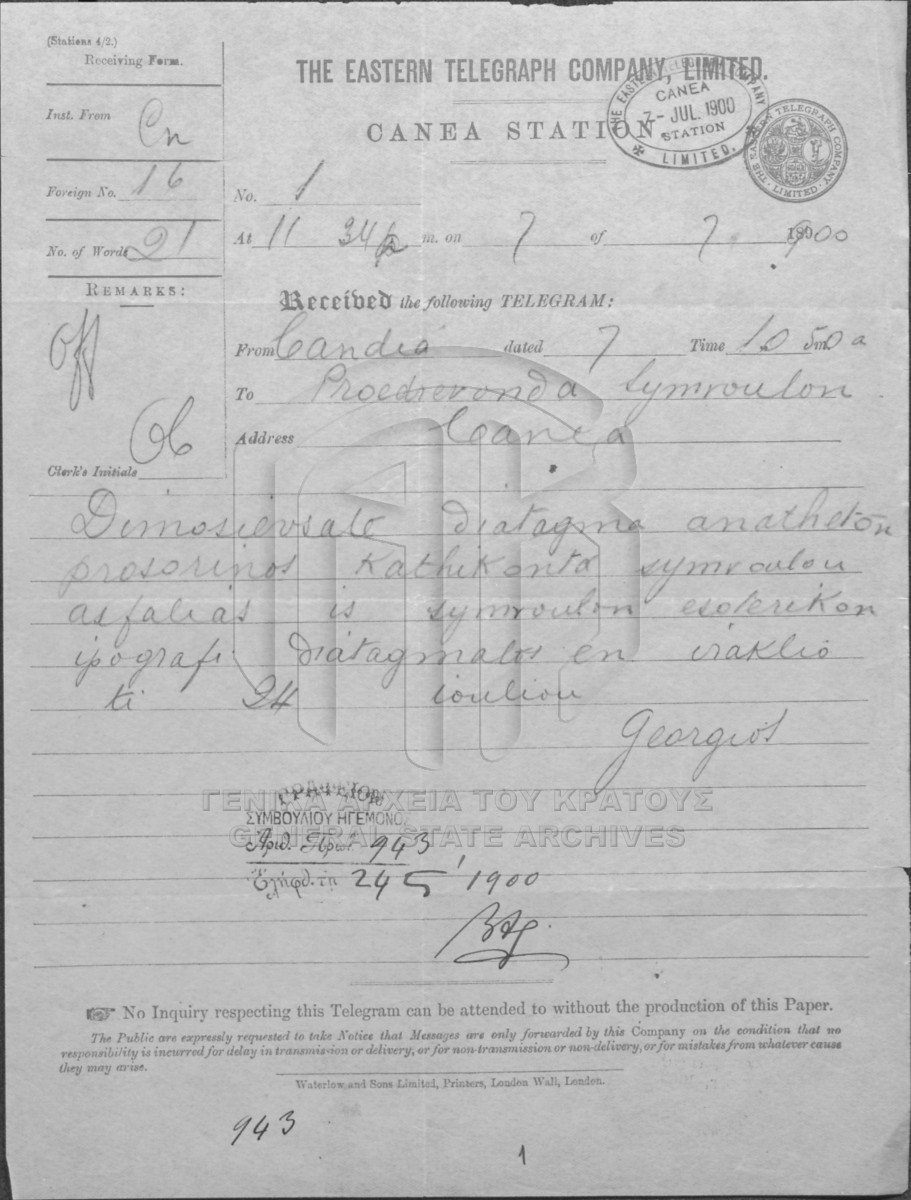 (Stations 4/2.)
Receiving Form.
Inst. From Cn
Foreign No. 16
No. of Words 21
REMARKS:
Off
Clerk's Initials
THE EASTERN TELEGRAPH COMPANY, LIMITED.
CANEA STATION
THE EASTERN TELEGRAPH COMPANY
CANEA
7-JUL.1900
STATION
LIMITED.
THE EASTERN TELEGRAPH COMPANY LIMITED
No. 1
At 11 34 a m. on 7 of 7 1900
Received the following TELEGRAM:
From Candia dated 7 Time 10 50 a
To Proedrevonda Symvoulon
Address Canea
Dimosievsate diatagma anatheton
prosorinos kathikonta symvoulou
asfalias is symvoulon esoterikon
ipografi diatagmatos en iraklio
ti 24 iouliou
Georgios
ΓΕΝΙΚΑ ΑΡΧΕΙΑ ΤΟΥ ΚΡΑΤΟΥΣ
GENERAL STATE ARCHIVES
ΓΡΑΦΕΙΟΝ
ΣΥΜΒΟΥΛΙΟΥ ΗΓΕΜΟΝΟΣ
Ἀριθ. Πρωτ. 943
Ἐλήφθ. τῇ 24 5 1900
No Inquiry respecting this Telegram can be attended to without the production of this Paper.
The Public are expressly requested to take Notice that Messages are only forwarded by this Company on the condition that no
responsibility is incurred for delay in transmission or delivery, or for non-transmission or non-delivery, or for mistakes from whatever cause
they may arise.
Waterlow and Sons Limited, Printers, London Wall, London.
943
1